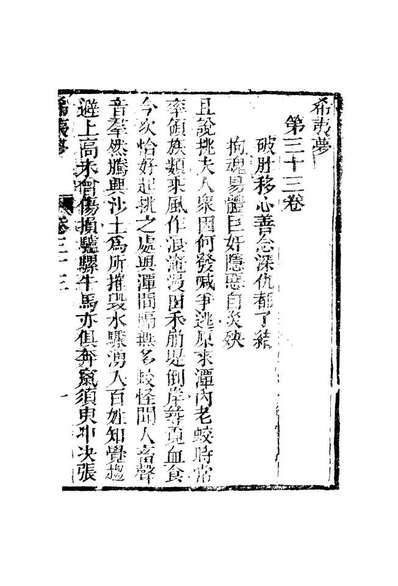 希夷夢
第三十三卷
破肘移心善念深仇都了結
拘魂易體巨奸隱惡自災殃
且說挑夫人衆因何發喊爭逃原來潭內老蛟時常
率領族類乘風作浪淹漫田禾崩堤倒岸尋覓血食
今次恰好起挑之處與潭間隔無多蛟怪聞人畜聲
音羣然騰興沙土爲所摧毀水驟湧入百姓知覺趨
避上高未曾傷損驢騾牛馬亦俱奔竄須臾冲决張
希夷夢 卷三十三 一